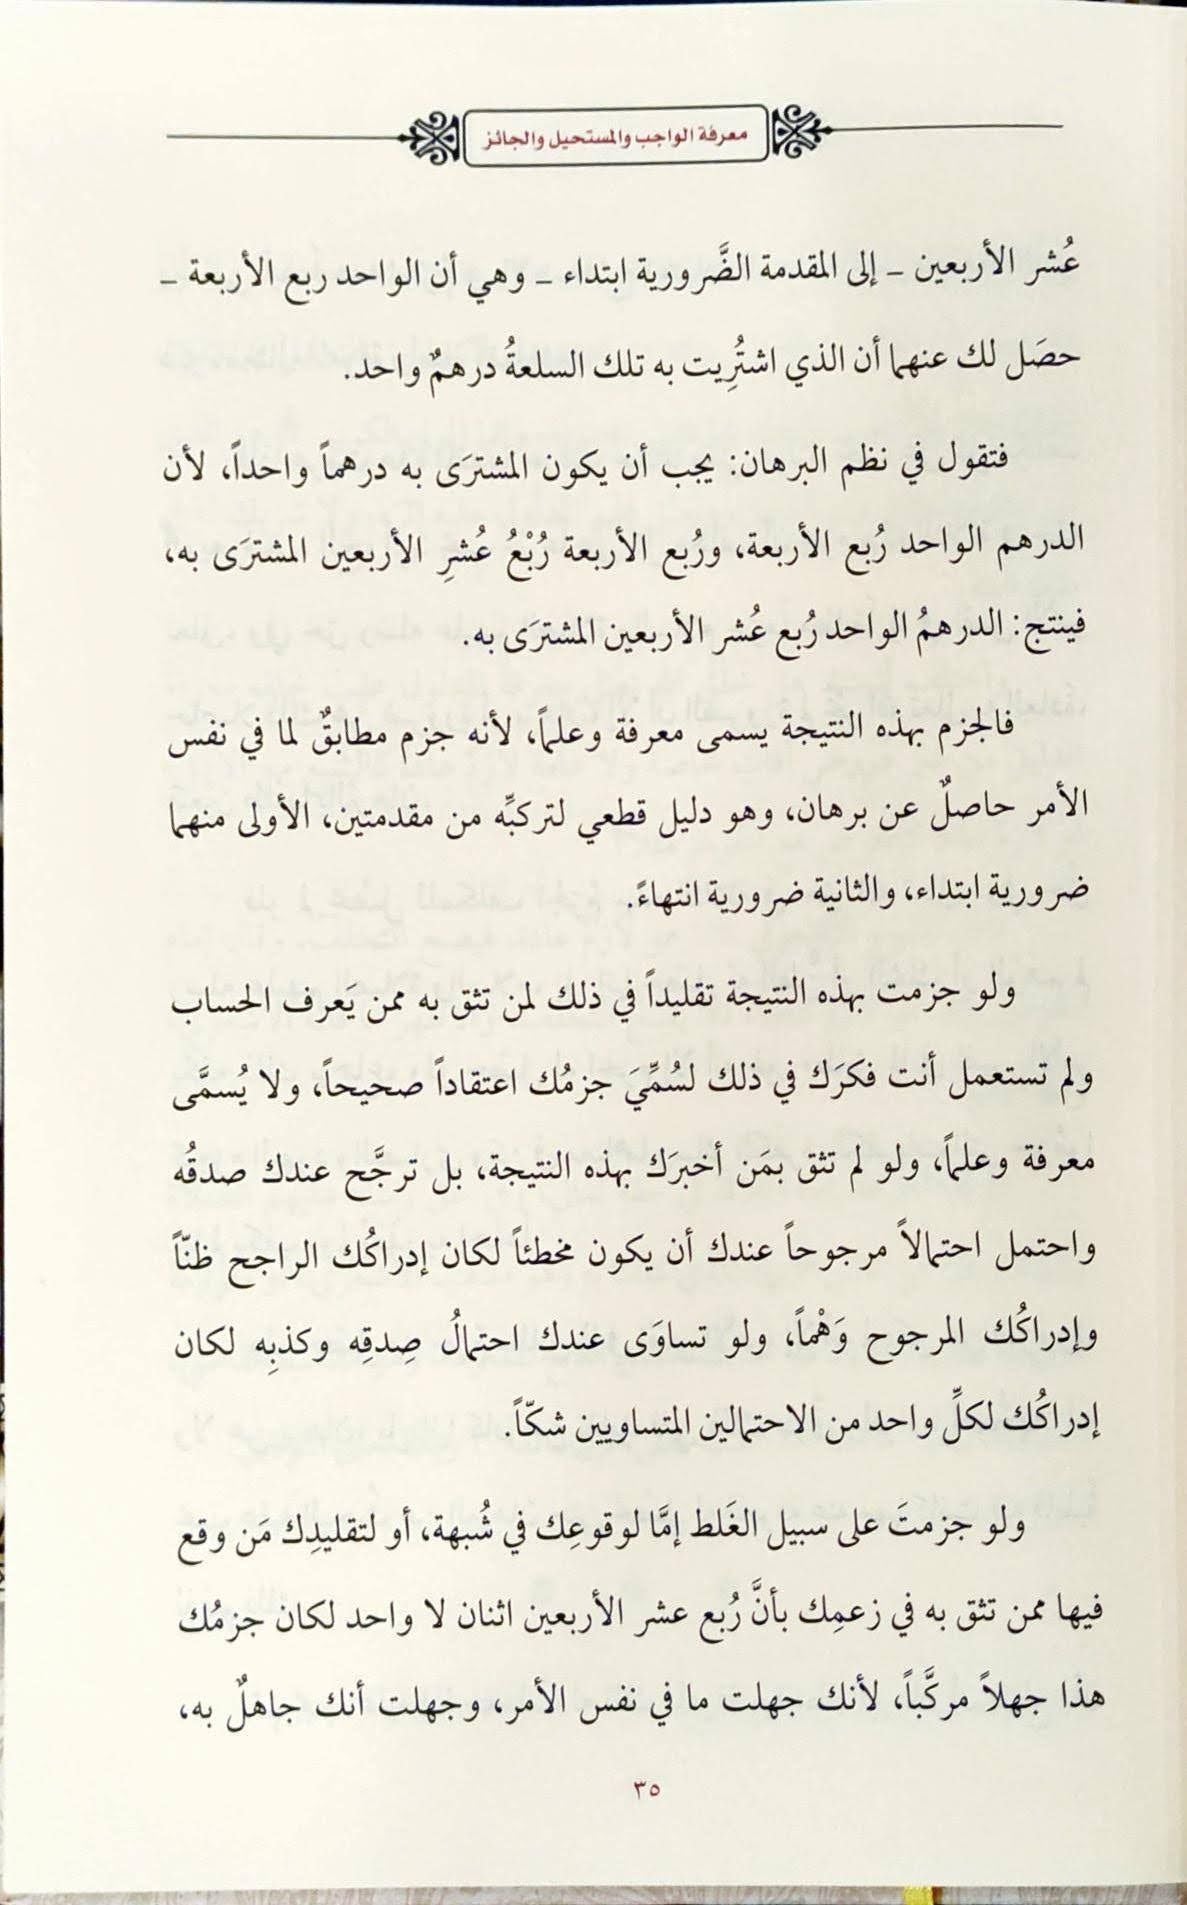 معرفة الواجب والمستحيل والجائز
عُشر الأربعين ـ إلى المقدمة الضَّرورية ابتداء ـ وهي أن الواحد ربع الأربعة ـ
حصَل لك عنهما أن الذي اشتُرِيت به تلك السلعةُ درهمٌ واحد.
فتقول في نظم البرهان: يجب أن يكون المشترَى به درهماً واحداً، لأن
الدرهم الواحد رُبع الأربعة، ورُبع الأربعة رُبْعُ عُشرِ الأربعين المشترَى به،
فينتج: الدرهمُ الواحد رُبع عُشر الأربعين المشترَى به.
فالجزم بهذه النتيجة يسمى معرفة وعلماً، لأنه جزم مطابقٌ لما في نفس
الأمر حاصلٌ عن برهان، وهو دليل قطعي لتركبِّه من مقدمتين، الأولى منهما
ضرورية ابتداء، والثانية ضرورية انتهاءً.
ولو جزمت بهذه النتيجة تقليداً في ذلك لمن تثق به ممن يَعرف الحساب
ولم تستعمل أنت فكرَك في ذلك لسُمِّيَ جزمُك اعتقاداً صحيحاً، ولا يُسمَّى
معرفة وعلماً، ولو لم تثق بمَن أخبرَك بهذه النتيجة، بل ترجَّح عندك صدقُه
واحتمل احتمالاً مرجوحاً عندك أن يكون مخطئاً لكان إدراكُك الراجح ظنّاً
وإدراكُك المرجوح وَهْماً، ولو تساوَى عندك احتمالُ صِدقِه وكذبِه لكان
إدراكُك لكلِّ واحد من الاحتمالين المتساويين شكّاً.
ولو جزمتَ على سبيل الغَلط إمَّا لوقوعِك في شُبهة، أو لتقليدِك مَن وقع
فيها ممن تثق به في زعمِك بأنَّ رُبع عشر الأربعين اثنان لا واحد لكان جزمُك
هذا جهلاً مركَّباً، لأنك جهلت ما في نفس الأمر، وجهلت أنك جاهلٌ به،
٣٥